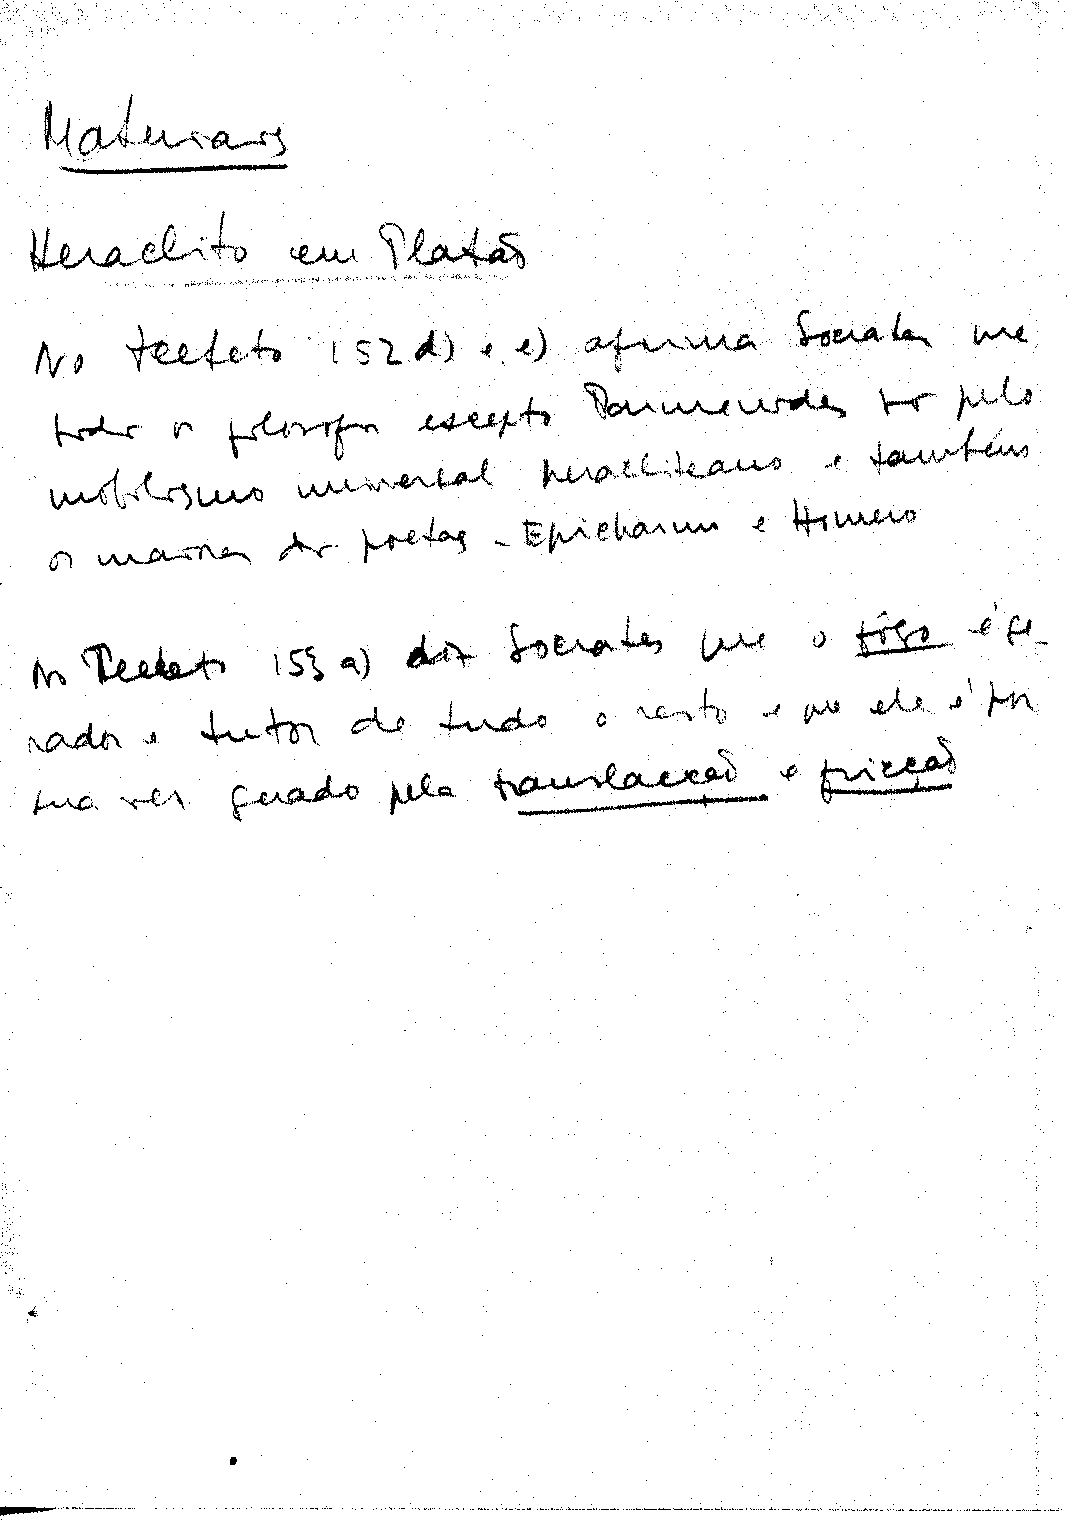 Materiais
Heraclito em Platão
No Teeteto 152 d) e e) afirma Socrates que
todos os filosofos excepto Parmenides são pelo
mobilismo universal heracliteano e também
os maiores dos poetas - Epicharmo e Homero
No Teeteto 153 a) diz Socrates que o fôgo é ge-
rador e tutor de tudo o resto e que ele é por
sua vez gerado pela translacção e fricção